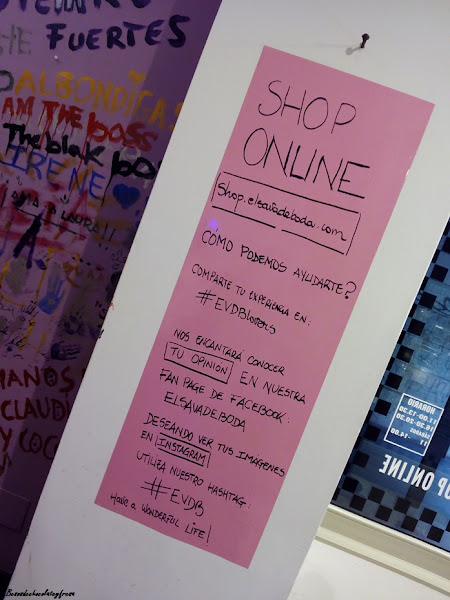 FUERTES
ALBONDIGAS
AM THE BOSS
The blak boss
IRENE
MANOS
CLAUDI
Y COC
SHOP
ONLINE
Shop.elsavadeboda.com
CÓMO PODEMOS AYUDARTE?
COMPARTE TU EXPERIENCIA EN:
#EVDBlovers
NOS ENCANTARÁ CONOCER
TU OPINIÓN EN NUESTRA
FAN PAGE DE FACEBOOK:
ELSAVADEBODA
DESEANDO VER TUS IMÁGENES
EN INSTAGRAM
UTILIZA NUESTRO HASHTAG:
#EVDB
Have a wonderful life!
HORARIO
SÁBADOS
OP ONLINE
Besosdechocolateyfresa